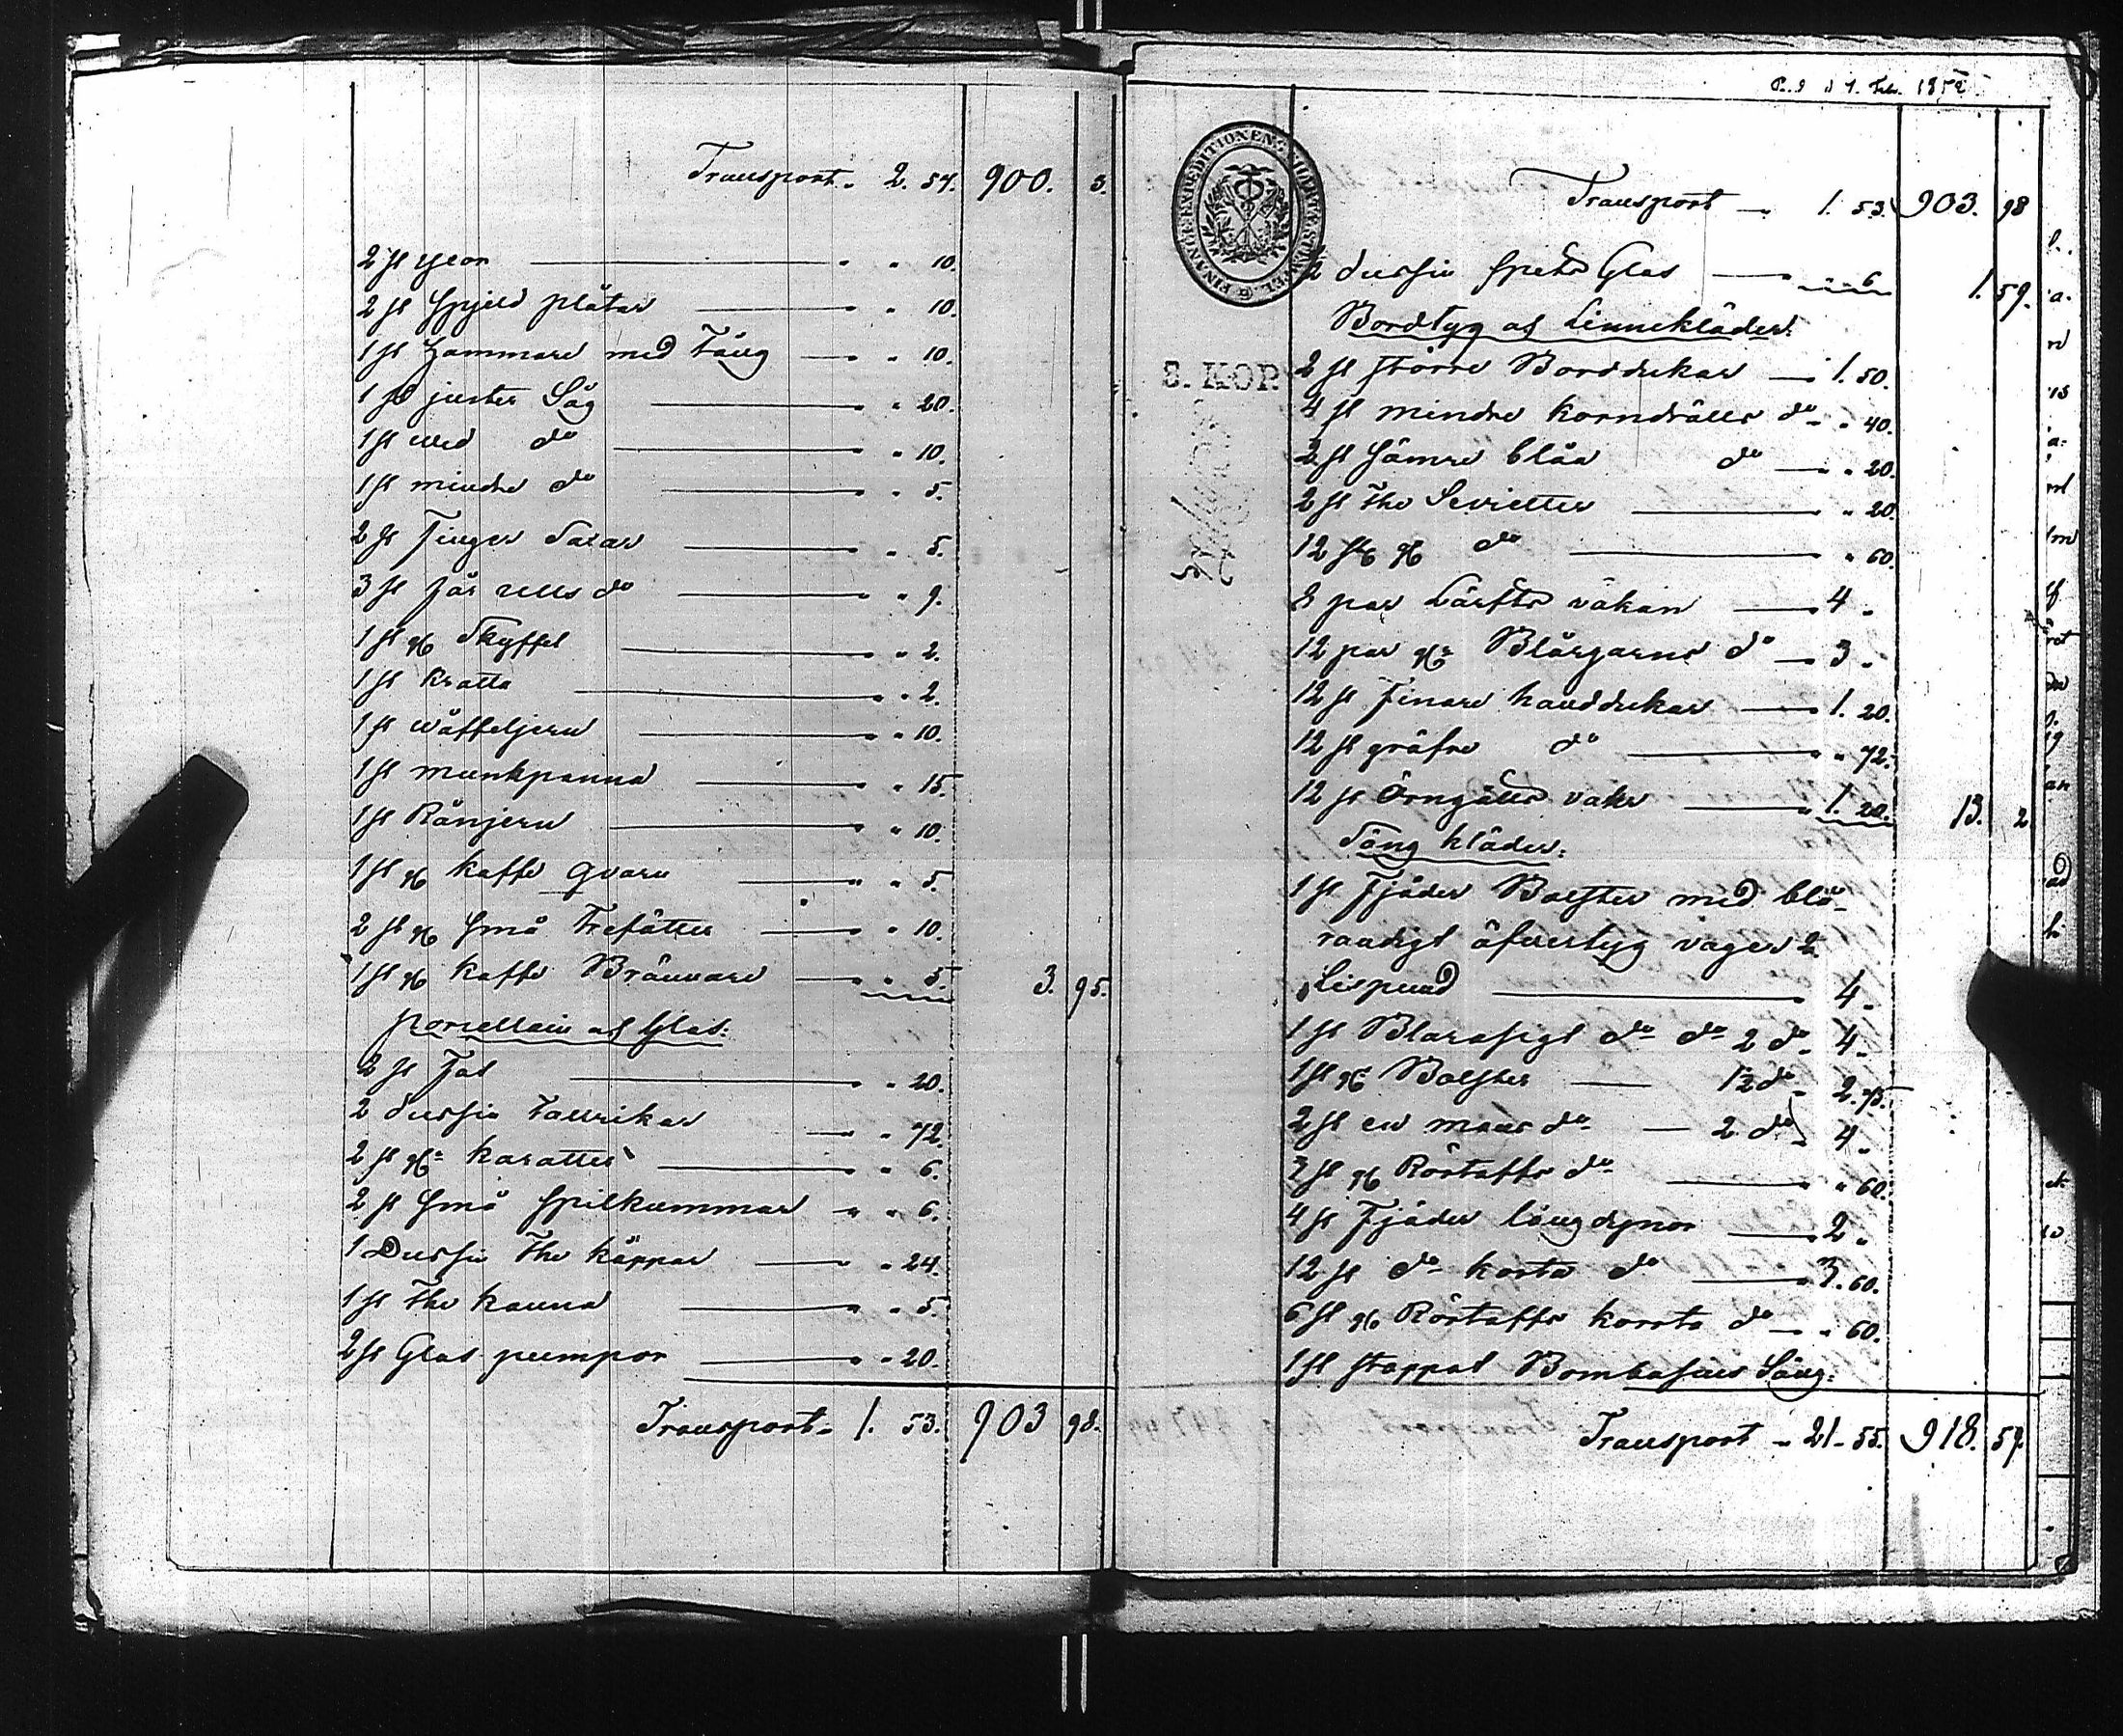 Transport 2. 57. 900. 3.
2 st yxor " 10.
2 st Spjeld plåtar " 10.
1 st Hammare med Tång " 10.
1 st juster Såg " 20.
1 st Ved do " 10.
1 st mindre do " 5.
2 st Finger " 5.
3 st do " 9.
1 st gl Skyffel " 2.
1 st Kratta " 2.
1 st Wåffeljern " 10.
1 st munkpanna " 15.
1 st Rånjern " 10.
1 st gl kaffe qvarn " 5.
2 st gl små Trefötter " 10.
1 st gl kaffe Brännare " 5. 3. 95.
Porcellain och Glas:
2 st Fat " 20.
2 dussin Tallrikar " 72.
2 st gl karotter " 6.
2 st små spilkummar " 6.
1 Dussin The koppar " 24.
1 st The kanna " 5.
2 st Glas pumpor " 20.
Transport 1. 53. 903 98.
1852
Transport 1. 53. 903. 98
FINANCE EXPEDITIONENS CHARTÆ STEMPEL
2 dussin spets Glas " 6 1. 59.
Bordtyg och Linnekläder:
8. KOP
2 st större Borddukar 1. 50.
4 st mindre korndrälls do " 40.
2 st sämre blåa do " 20.
2 st The Servietter " 20.
12 st gl do " 60.
8 par Lärfts vakan 4 "
12 par gl Blårgarns do 3 "
12 st Finare handdukar 1. 20.
12 st gröfre do " 72.
12 st Örngåtts var 1. 20. 13. 2
Säng kläder:
1 st Fjäder Bolster med blå-
randigt öfvertyg väger 2
Lispund 4 "
1 st do do 2 do 4 "
1 st gl Bolster 1½ do 2. 75.
2 st en mans do 2 do 4 "
2 st gl do " 60.
4 st Fjäder långdynor 2 "
12 st do korta do 3. 60.
6 st gl korta do " 60.
1 st stoppat Bombasins Säng-
Transport 21. 55. 918. 59.